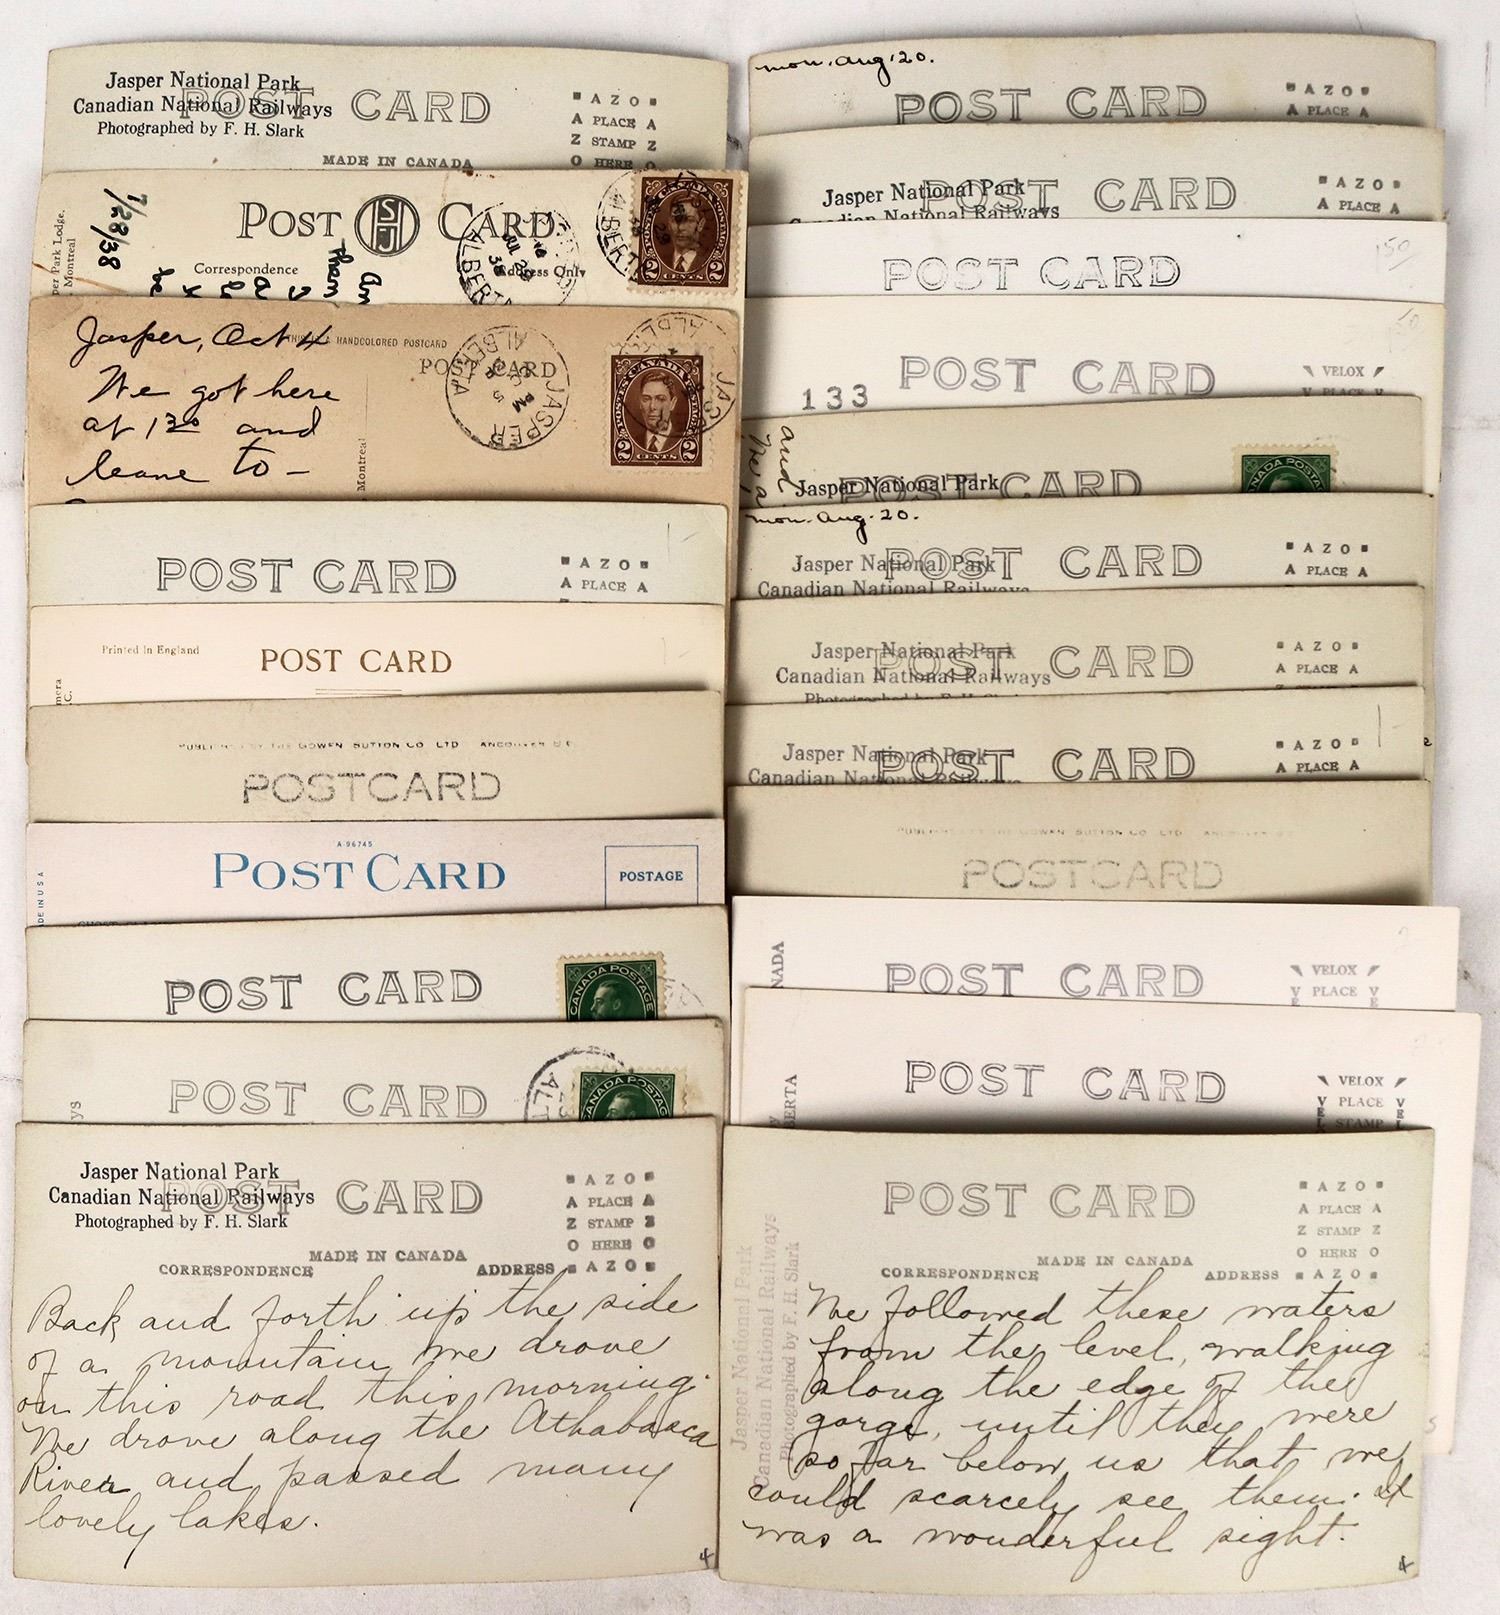 Jasper National Park
Canadian National Railways
Photographed by F. H. Slark
POST CARD
AZO
PLACE
STAMP
HERE
MADE IN CANADA
7/28/38
POST CARD
SHJ
Correspondence
Address Only
per Park Lodge.
Montreal
ALBERTA
CANADA POSTAGE
2 CENTS 2
Jasper, Oct 4
HANDCOLORED POSTCARD
We got here
at 1 30 and
leave to -
POST CARD
Montreal
JASPER
ALBERTA
PM
POSTES CANADA POSTAGE
2 CENTS 2
POST CARD
AZO
A PLACE A
Printed in England
POST CARD
PUBLISHED BY THE GOWEN SUTTON CO LTD VANCOUVER B.C.
POSTCARD
A-96745
POST CARD
POSTAGE
DE IN U S A
POST CARD
CANADA POSTAGE
POST CARD
CANADA POSTAGE
Jasper National Park
Canadian National Railways
Photographed by F. H. Slark
POST CARD
AZO
A PLACE A
Z STAMP Z
O HERE O
AZO
MADE IN CANADA
CORRESPONDENCE
ADDRESS
Back and forth up the side
of a mountain we drove
on this road this morning.
We drove along the Athabasca
River and passed many
lovely lakes.
4
mon. Aug. 20.
POST CARD
AZO
A PLACE A
Jasper National Park
Canadian National Railways
POST CARD
AZO
A PLACE A
POST CARD
150
POST CARD
133
VELOX
PLACE
and
Jasper National Park
POST CARD
CANADA POSTAGE
mon. Aug. 20.
Jasper National Park
Canadian National Railways
POST CARD
AZO
A PLACE A
Jasper National Park
Canadian National Railways
Photographed by F. H. Slark
POST CARD
AZO
A PLACE A
Jasper National Park
Canadian National Railways
POST CARD
AZO
A PLACE A
PUBLISHED BY THE GOWEN SUTTON CO LTD VANCOUVER B.C.
POSTCARD
NADA
POST CARD
VELOX
PLACE
BERTA
POST CARD
VELOX
PLACE
STAMP
POST CARD
AZO
A PLACE A
Z STAMP Z
O HERE O
AZO
MADE IN CANADA
CORRESPONDENCE
ADDRESS
Jasper National Park
Canadian National Railways
Photographed by F. H. Slark
We followed these waters
from the level, walking
along the edge of the
gorge, until they were
so far below us that we
could scarcely see them. It
was a wonderful sight.
4